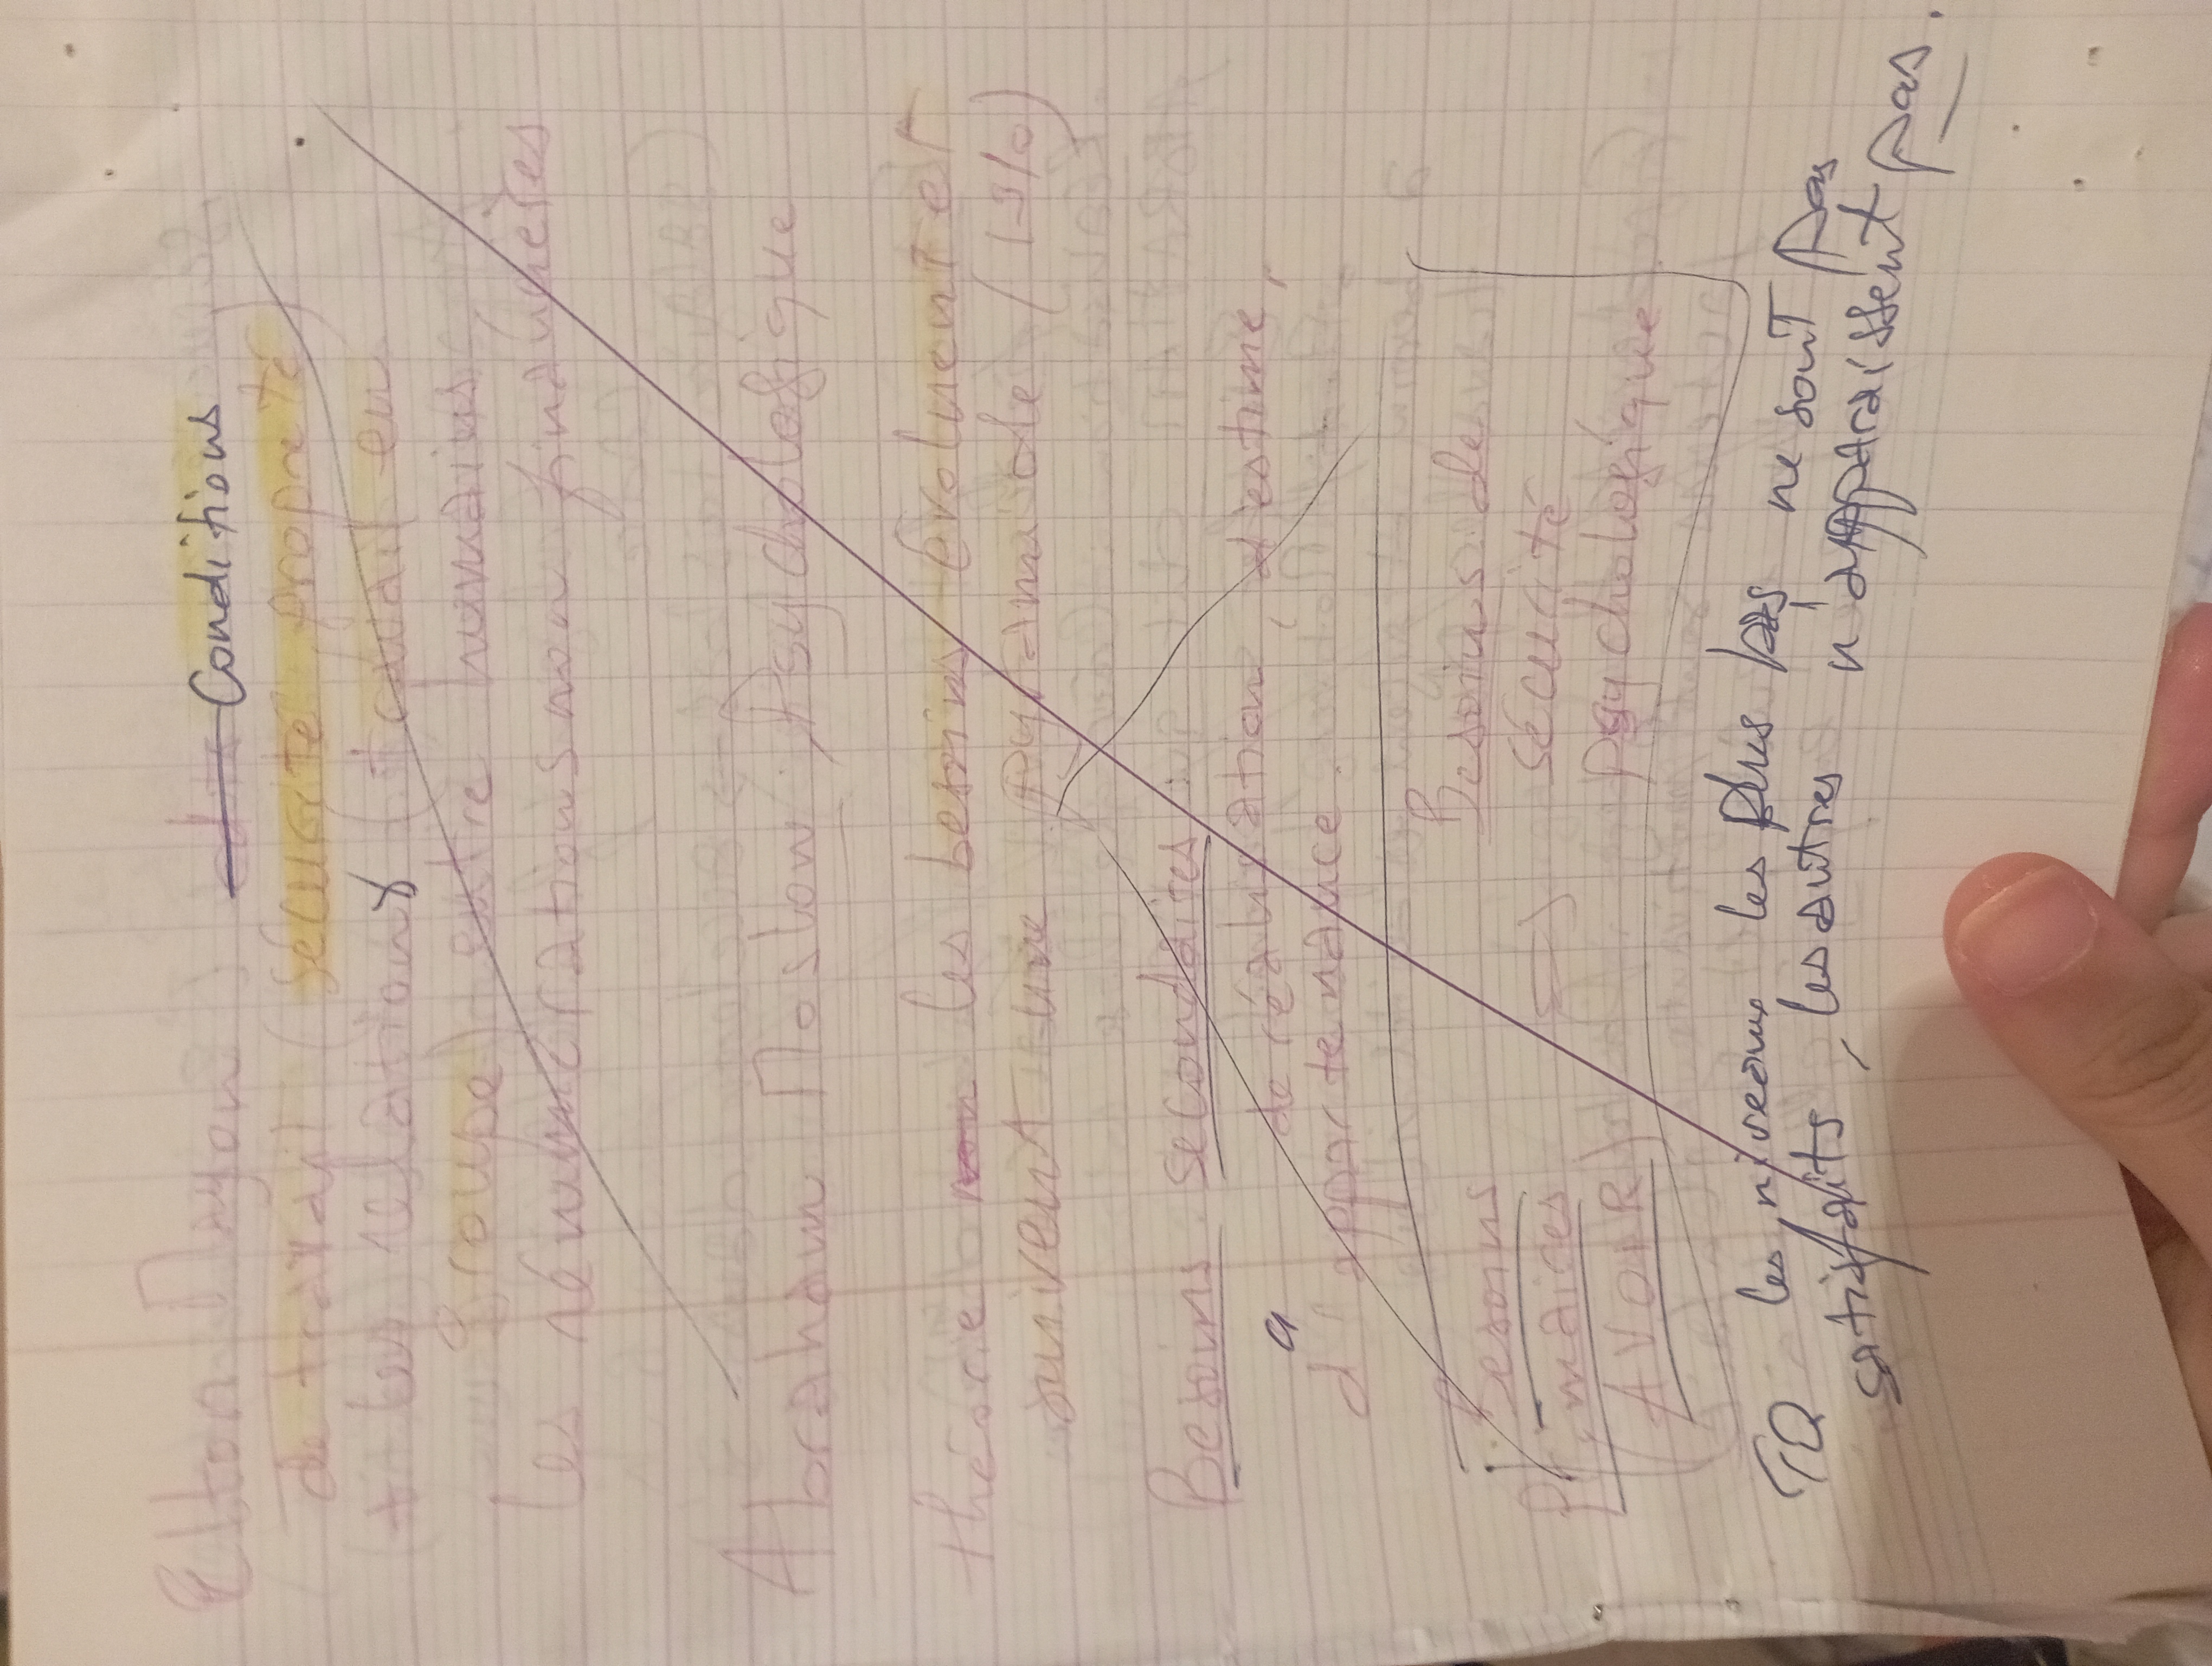 Elton Mayon) Conditions
de travail (sécurité, propreté)
+ les relations (travail en
groupe) entre humains,
les rénumérations non financières
Abraham Moslow, Psychologique
théorie non les besoins évoluent et
suivent une pyramide
Besoins secondaires
a de réalisation, d'estime,
d'appartenance.
Besoins Besoins de
primaires => sécurité
(AVOIR) psychologique.
TQ les niveaux les plus bas ne sont pas
satisfaits, les autres n'apparaissent pas.